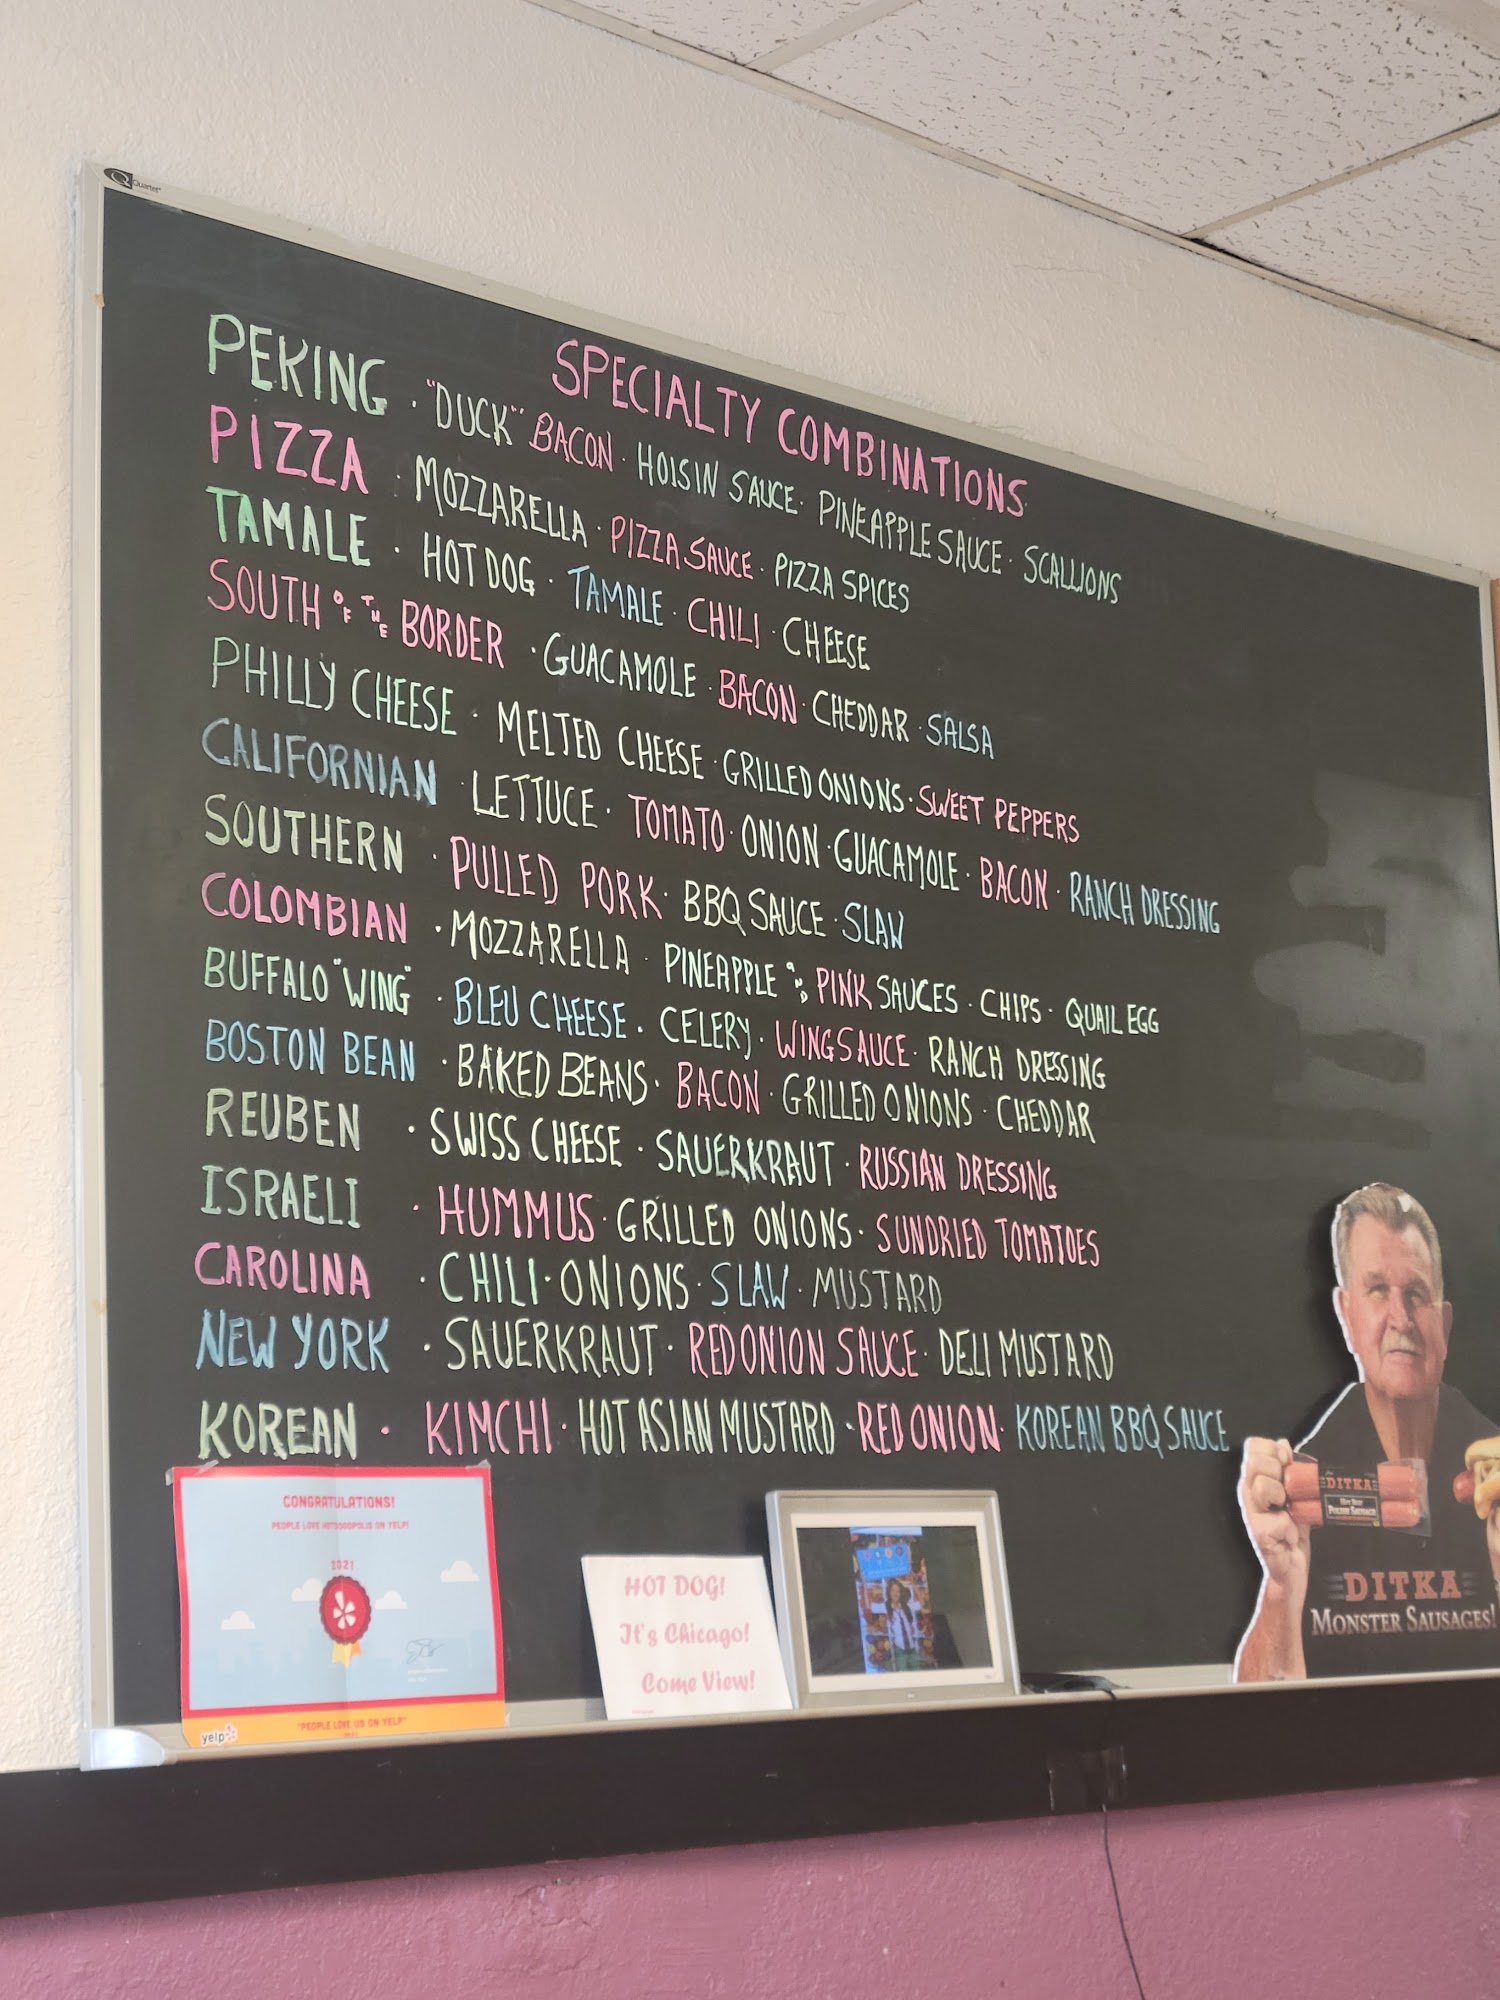 Quartet
SPECIALTY COMBINATIONS
PEKING · "DUCK" BACON · HOISIN SAUCE · PINEAPPLE SAUCE · SCALLIONS
PIZZA · MOZZARELLA · PIZZA SAUCE · PIZZA SPICES
TAMALE · HOT DOG · TAMALE · CHILI · CHEESE
SOUTH OF THE BORDER · GUACAMOLE · BACON · CHEDDAR · SALSA
PHILLY CHEESE · MELTED CHEESE · GRILLED ONIONS · SWEET PEPPERS
CALIFORNIAN · LETTUCE · TOMATO · ONION · GUACAMOLE · BACON · RANCH DRESSING
SOUTHERN · PULLED PORK · BBQ SAUCE · SLAW
COLOMBIAN · MOZZARELLA · PINEAPPLE AND PINK SAUCES · CHIPS · QUAIL EGG
BUFFALO "WING" · BLEU CHEESE · CELERY · WING SAUCE · RANCH DRESSING
BOSTON BEAN · BAKED BEANS · BACON · GRILLED ONIONS · CHEDDAR
REUBEN · SWISS CHEESE · SAUERKRAUT · RUSSIAN DRESSING
ISRAELI · HUMMUS · GRILLED ONIONS · SUNDRIED TOMATOES
CAROLINA · CHILI · ONIONS · SLAW · MUSTARD
NEW YORK · SAUERKRAUT · RED ONION SAUCE · DELI MUSTARD
KOREAN · KIMCHI · HOT ASIAN MUSTARD · RED ONION · KOREAN BBQ SAUCE
CONGRATULATIONS!
PEOPLE LOVE HOTDOGOPOLIS ON YELP!
2021
yelp
"PEOPLE LOVE US ON YELP"
HOT DOG!
It's Chicago!
Come View!
DITKA
HOT BEEF
POLISH SAUSAGE
DITKA
MONSTER SAUSAGES!